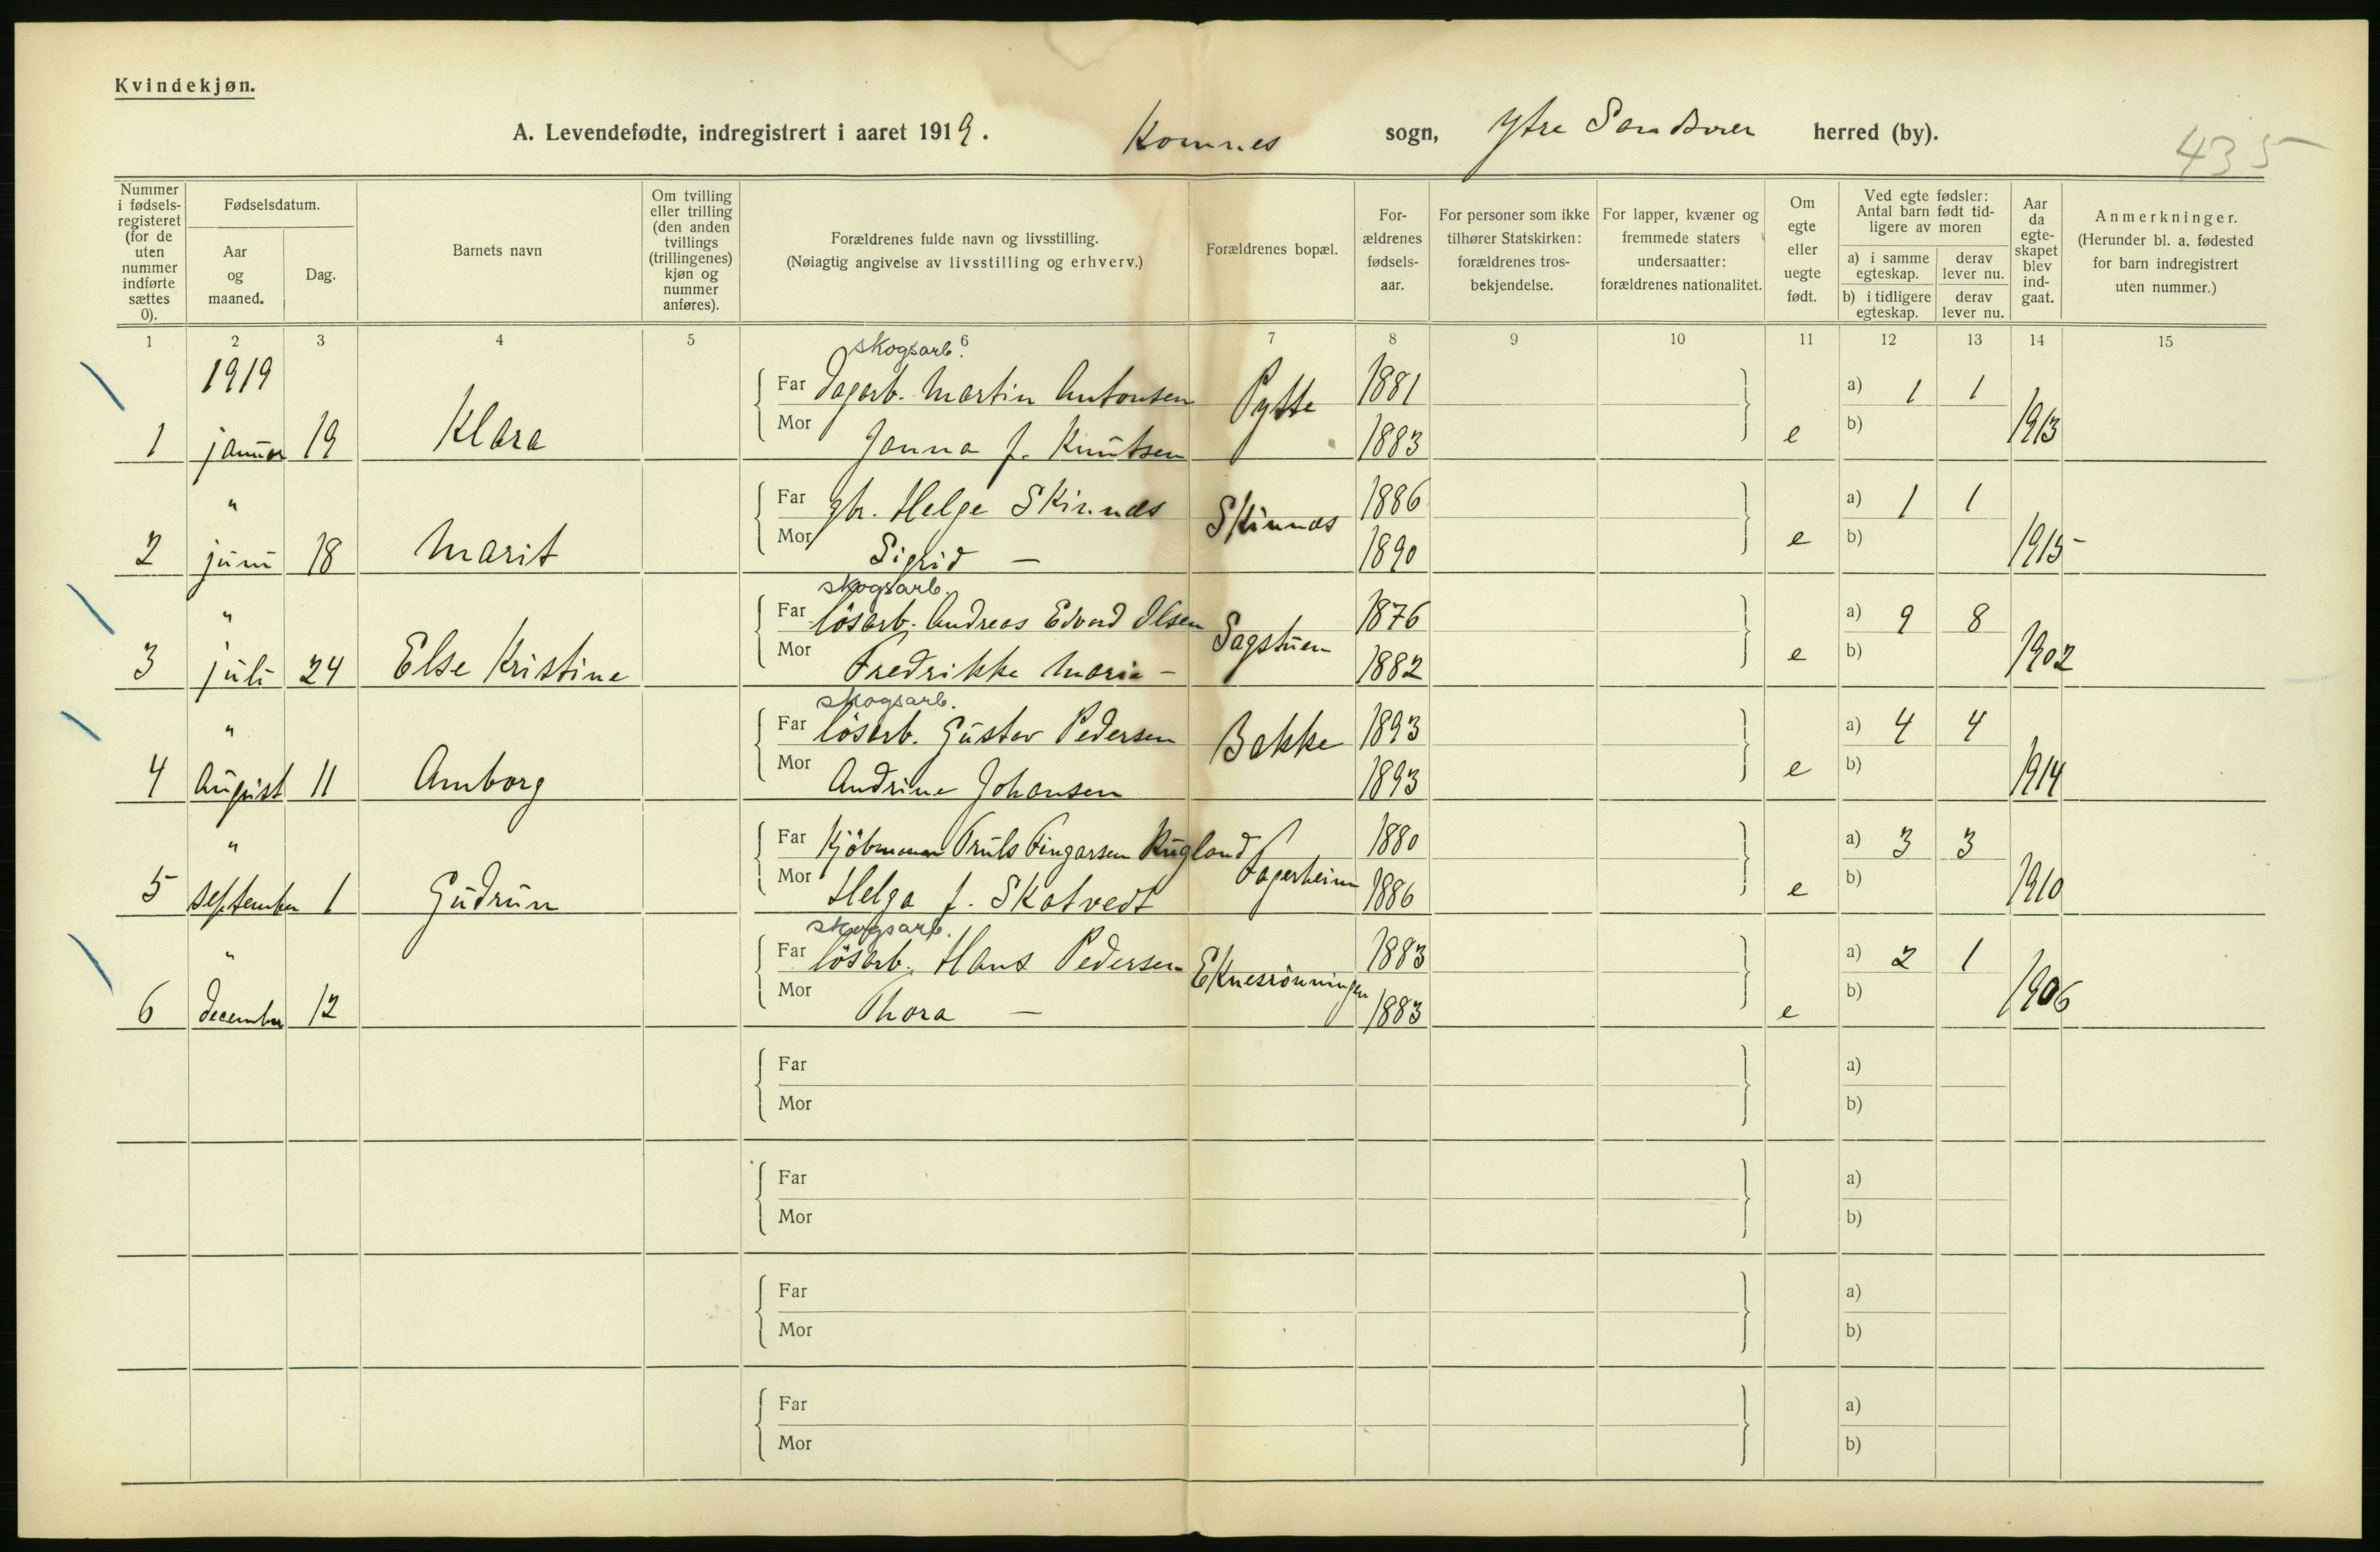 Kvindekjøn.
A. Levendefødte, indregistrert i aaret 1919. Komnes sogn, Ytre Sandsvær herred (by).
435
Nummer i fødselsregisteret (for de uten nummer indførte sættes 0).
Fødselsdatum.
Aar og maaned.
Dag.
Barnets navn
Om tvilling eller trilling (den anden tvillings (trillingenes) kjøn og nummer anføres).
Forældrenes fulde navn og livsstilling.
(Nøiagtig angivelse av livsstilling og erhverv.)
Forældrenes bopæl.
For-ældrenes fødsels-aar.
For personer som ikke tilhører Statskirken: forældrenes tros-bekjendelse.
For lapper, kvæner og fremmede staters undersaatter: forældrenes nationalitet.
Om egte eller uegte født.
Ved egte fødsler: Antal barn født tid-ligere av moren
a) i samme egteskap.
derav lever nu.
b) i tidligere egteskap.
derav lever nu.
Aar da egte-skapet blev ind-gaat.
Anmerkninger.
(Herunder bl. a. fødested for barn indregistrert uten nummer.)
1 2 3 4 5 6 7 8 9 10 11 12 13 14 15
1919 skogsarb.
Far Dagarb. Martin Antonsen Pytte 1881 a) 1 1
1 januar 19 Klara Mor Janna f. Knutsen 1883 e b) 1913
" Far gbr. Helge Skinnes Skinnes 1886 a) 1 1
2 juni 18 Marit Mor Sigrid — 1890 e b) 1915
skogsarb.
" Far løsarb. Andreas Edvard Olsen Sagstuen 1876 a) 9 8
3 juli 24 Else Kristine Mor Fredrikke Marie — 1882 e b) 1902
skogsarb.
" Far løsarb. Gustav Pedersen Bakke 1893 a) 4 4
4 August 11 Amborg Mor Andrine Johansen 1893 e b) 1914
" Far Kjöbmann Truls Fingarsen Rugland Fagerheim 1880 a) 3 3
5 september 1 Gudrun Mor Helga f. Skatvedt 1886 e b) 1910
skogsarb.
" Far løsarb. Hans Pedersen Eknesrönningen 1883 a) 2 1
6 december 12 Mor Thora — 1883 e b) 1906
Far a)
Mor b)
Far a)
Mor b)
Far a)
Mor b)
Far a)
Mor b)